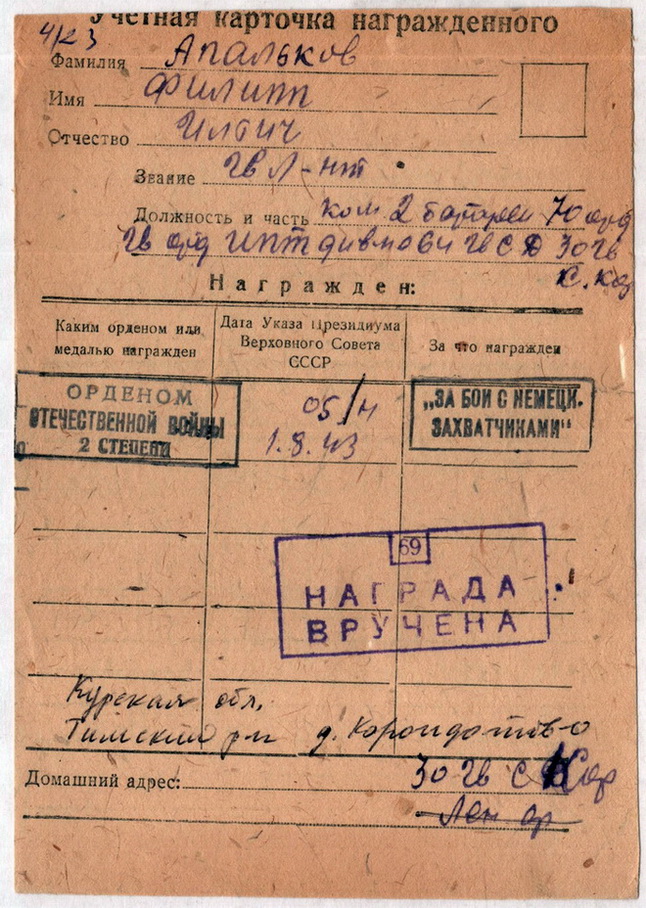 Учетная карточка награжденного
4/23
Фамилия Апальков
Имя Филипп
Отчество Ильич
Звание гв л-нт
Должность и часть ком 2 батареи 70 орд
гв ИПТ гв С Д 30 гв
С. Кор
Награжден:
Каким орденом или медалью награжден
Дата Указа Президиума Верховного Совета СССР
За что награжден
ОРДЕНОМ
ОТЕЧЕСТВЕННОЙ ВОЙНЫ
2 СТЕПЕНИ
05/н
1.8.43
„ЗА БОИ С НЕМЕЦК.
ЗАХВАТЧИКАМИ“
69
НАГРАДА
ВРУЧЕНА
Курская обл.
Тимский р-н д.
Домашний адрес: 30 гв С Кор
Лен ф